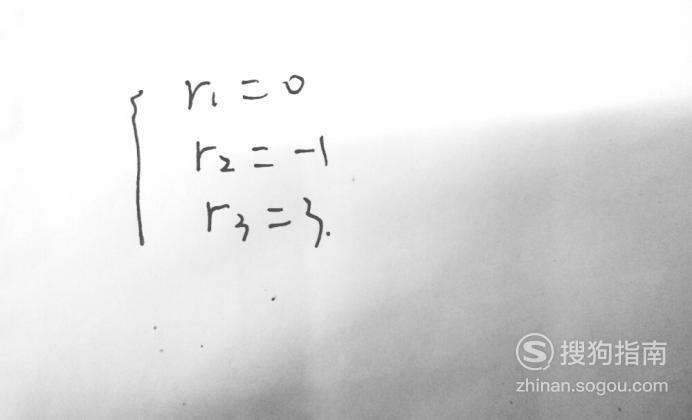 r₁ = 0
r₂ = -1
r₃ = 3.
搜狗指南
zhinan.sogou.com